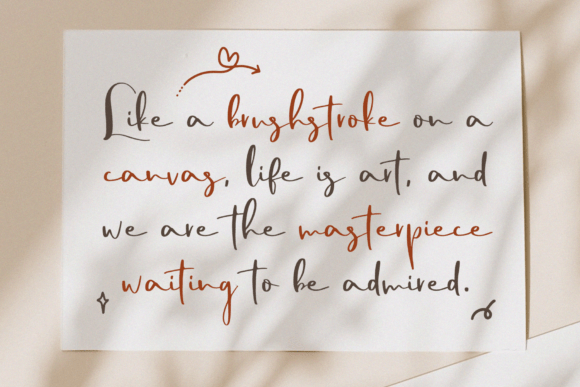 Like a brushstroke on a
canvas, life is art, and
we are the masterpiece
waiting to be admired.